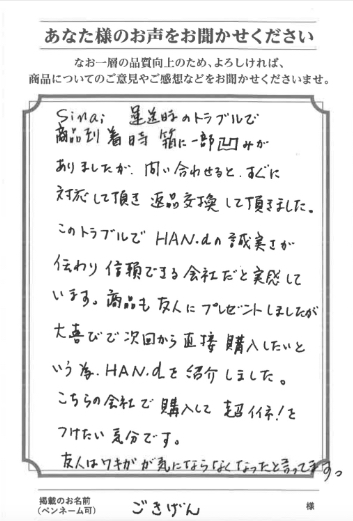 あなた様のお声をお聞かせください
なお一層の品質向上のため、よろしければ、
商品についてのご意見やご感想などをお聞かせくださいませ。
Sinai 運送時のトラブルで
商品到着時 箱に一部凹みが
ありましたが、問い合わせると、すぐに
対応して頂き 返品交換して頂きました。
このトラブルで HAN.dの誠実さが
伝わり 信頼できる会社だと実感して
います。商品も友人にプレゼントしましたが
大喜びで次回から直接購入したいと
いう為、HAN.dを紹介しました。
こちらの会社で購入して 超イイネ!を
つけたい気分です。
友人はワキガが気にならなくなったと言ってます。
掲載のお名前
(ペンネーム可)
ごきげん 様